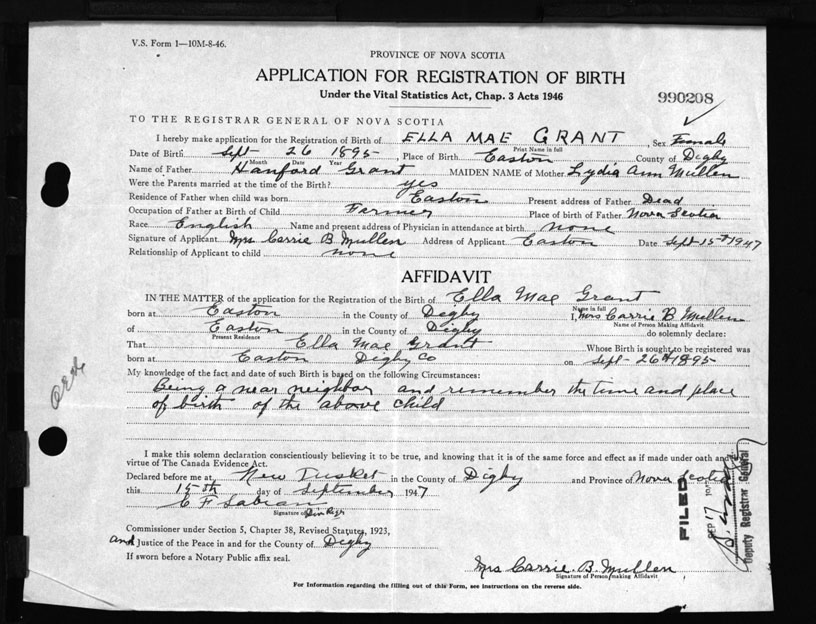 V.S. Form 1—10M-8-46.
PROVINCE OF NOVA SCOTIA
APPLICATION FOR REGISTRATION OF BIRTH
Under the Vital Statistics Act, Chap. 3 Acts 1946
990208
TO THE REGISTRAR GENERAL OF NOVA SCOTIA
I hereby make application for the Registration of Birth of ELLA MAE GRANT, Sex Female
Print Name in full
Date of Birth Sept 26 1895, Place of Birth Easton County of Digby
Month Date Year
Name of Father Hanford Grant MAIDEN NAME of Mother Lydia Ann Mullen
Were the Parents married at the time of the Birth? yes
Residence of Father when child was born Easton Present address of Father Dead
Occupation of Father at Birth of Child Farmer Place of birth of Father Nova Scotia
Race English Name and present address of Physician in attendance at birth none
Signature of Applicant Mrs Carrie B Mullen Address of Applicant Easton Date Sept 15th 1947
Relationship of Applicant to child none
AFFIDAVIT
IN THE MATTER of the application for the Registration of Birth of Ella Mae Grant
Name in full
born at Easton in the County of Digby I, Mrs Carrie B Mullen
Name of Person Making Affidavit
of Easton in the County of Digby do solemnly declare:
Present Residence
That Ella Mae Grant Whose Birth is sought to be registered was
born at Easton Digby Co on Sept 26th 1895
My knowledge of the fact and date of such Birth is based on the following Circumstances:
Being a near neighbor and remember the time and place
of birth of the above child
I make this solemn declaration conscientiously believing it to be true, and knowing that it is of the same force and effect as if made under oath and
virtue of The Canada Evidence Act.
Declared before me at New Tusket in the County of Digby and Province of Nova Scotia
this 15th day of September 1947
C F Sabean
Signature of Div Regr
Commissioner under Section 5, Chapter 38, Revised Statutes, 1923,
and Justice of the Peace in and for the County of Digby
If sworn before a Notary Public affix seal.
Mrs Carrie. B. Mullen
Signature of Person making Affidavit
For Information regarding the filling out of this Form, see instructions on the reverse side.
FILED
SEP 17
Deputy Registrar General